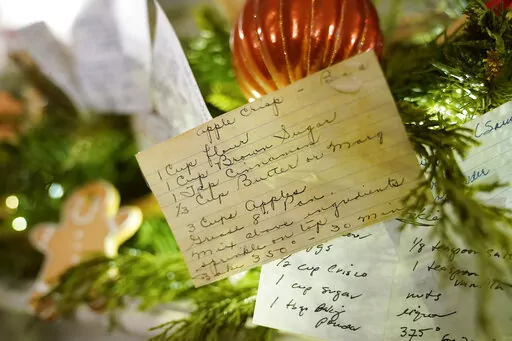 apple Crisp -
1 Cup flour
1 Cup Brown Sugar
1 Tsp Cinnamon
1/3 Cup Butter or Marg
3 Cups Apples
Grease 8" Pan.
Mix above ingredients
sprinkle on top
Bake 350° 30 Min
1/2 cup Crisco
1 cup sugar
1 tbsp Bakg
Powder
1/8 teaspoon salt
1 teaspoon
nuts
375°